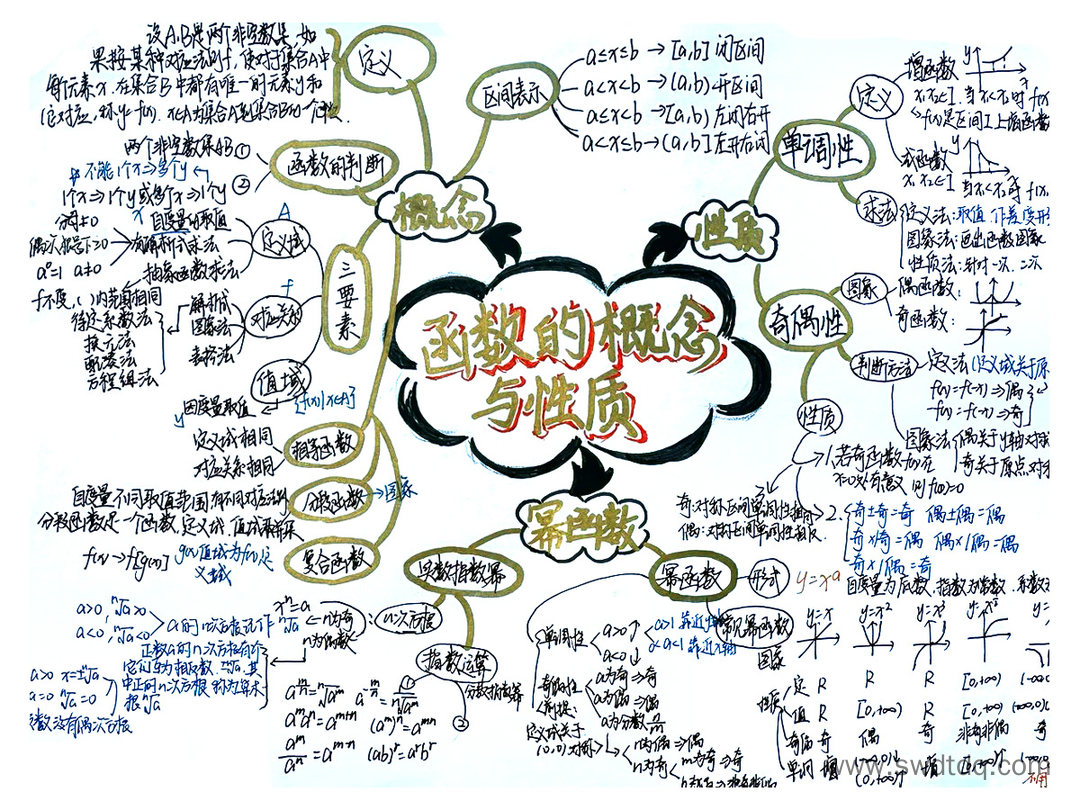 函数的概念
与性质
概念
定义
设A,B是两个非空数集,如
果按某种对应法则f,使对于集合A中
每一元素x,在集合B中都有唯一的元素y和
它对应,称y=f(x),x∈A为集合A到集合B的一个函数.
区间表示
a≤x≤b → [a,b] 闭区间
a<x<b → (a,b) 开区间
a≤x<b → [a,b) 左闭右开
a<x≤b → (a,b] 左开右闭
函数的判断
两个非空数集AB ①
不能1个x⇒多个y
② 1个x⇒1个y或多个x⇒1个y
三要素
A
定义域
x 自变量的取值
分母≠0
偶次根号下≥0
a⁰=1 a≠0
抽象函数求法
f不变,( )内范围相同
f
对应关系
解析式
图象法
表格法
待定系数法
换元法
配凑法
方程组法
值域
{f(x)|x∈A}
y 因变量取值
相等函数
定义域相同
对应关系相同
分段函数
→图象
自变量不同取值范围,有不同对应法则
分段函数是一个函数,定义域、值域取并集
复合函数
f(x) → f[g(x)]
g(x)值域为f(x)定
义域
性质
单调性
定义
增函数
x₁x₂∈I
当x₁<x₂时 f(x₁
f(x)是区间I上增函数
减函数
x₁x₂∈I
当x₁<x₂时 f(x₁
求法
定义法:取值 作差 变形
图象法:画出函数图象
性质法:针对一次、二次
奇偶性
图象
偶函数:
奇函数:
判断方法
定义法(定义域关于原
f(x)=f(-x)⇒偶
-f(x)=f(-x)⇒奇
图象法
偶关于y轴对称
奇关于原点对称
性质
1.若奇函数f(x)在
x=0处有意义 则f(0)=0
奇:对称区间单调性相同
偶:对称区间单调性相反
2.
奇±奇=奇 偶±偶=偶
奇×奇=偶 偶×偶=偶
奇×偶=奇
幂函数
实数指数幂
n次方根
xⁿ=a
n为奇
n为偶
a>0, ⁿ√a>0
a<0, ⁿ√a<0
a的n次方根记作ⁿ√a
正数a的n次方根有两个
它们互为相反数,±ⁿ√a,其
中正的n次方根 称为算术
根ⁿ√a
a>0 x=±ⁿ√a
x=0 ⁿ√a=0
负数没有偶次方根
指数运算
① 分数指数幂
②
aᵐaⁿ=aᵐ⁺ⁿ (aᵐ)ⁿ=aᵐⁿ
aᵐ/aⁿ=aᵐ⁻ⁿ (ab)ʳ=aʳbʳ
幂函数
形式
y=xᵃ
自变量为底数,指数为常数,系数为
常见幂函数
图象
y=x y=x² y=x³ y=
性质
定 R R R [0,+∞)
值 R [0,+∞) R [0,+∞)
奇偶 奇 偶 奇 非奇非偶 奇
单调 增 增
单调性
a>0↗
a<0↘
a>1 靠近y轴
a<1 靠近x轴
奇偶性
前提:
定义域关于
(0,0)对称
a为奇⇒奇
a为偶⇒偶
a为分数
n为偶⇒偶
n为奇
m为奇⇒奇
www.swdtdq.com